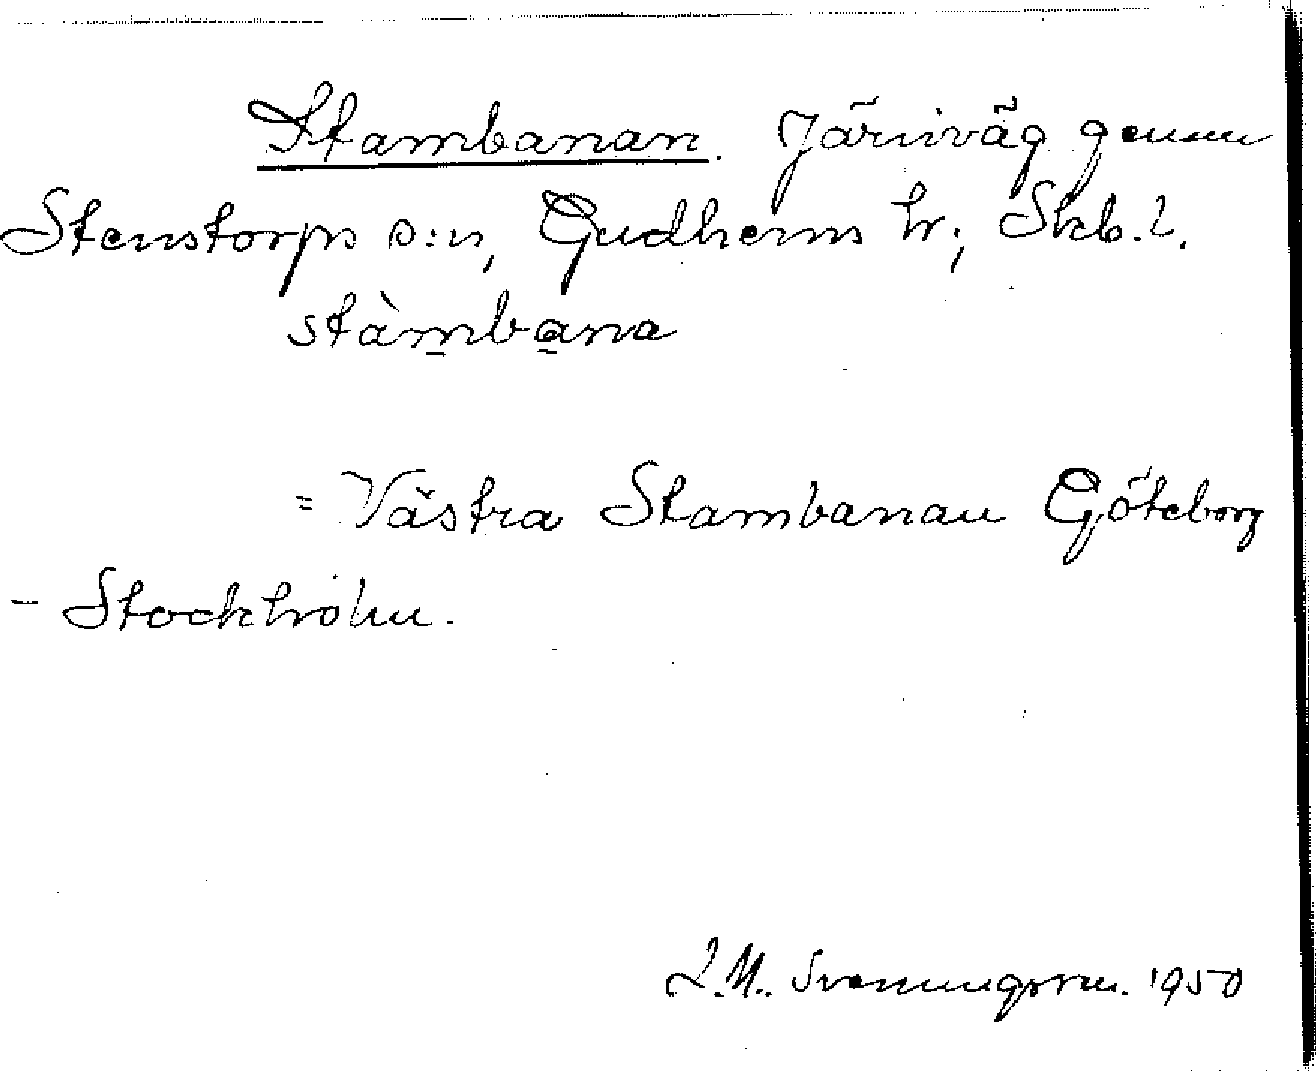 Stambanan. Järnväg genom
Stenstorps s:n, Gudhems hr; Skb. l.
stàmbana
= Västra Stambanan Göteborg
- Stockholm.
L.M. Svenungsson. 1950